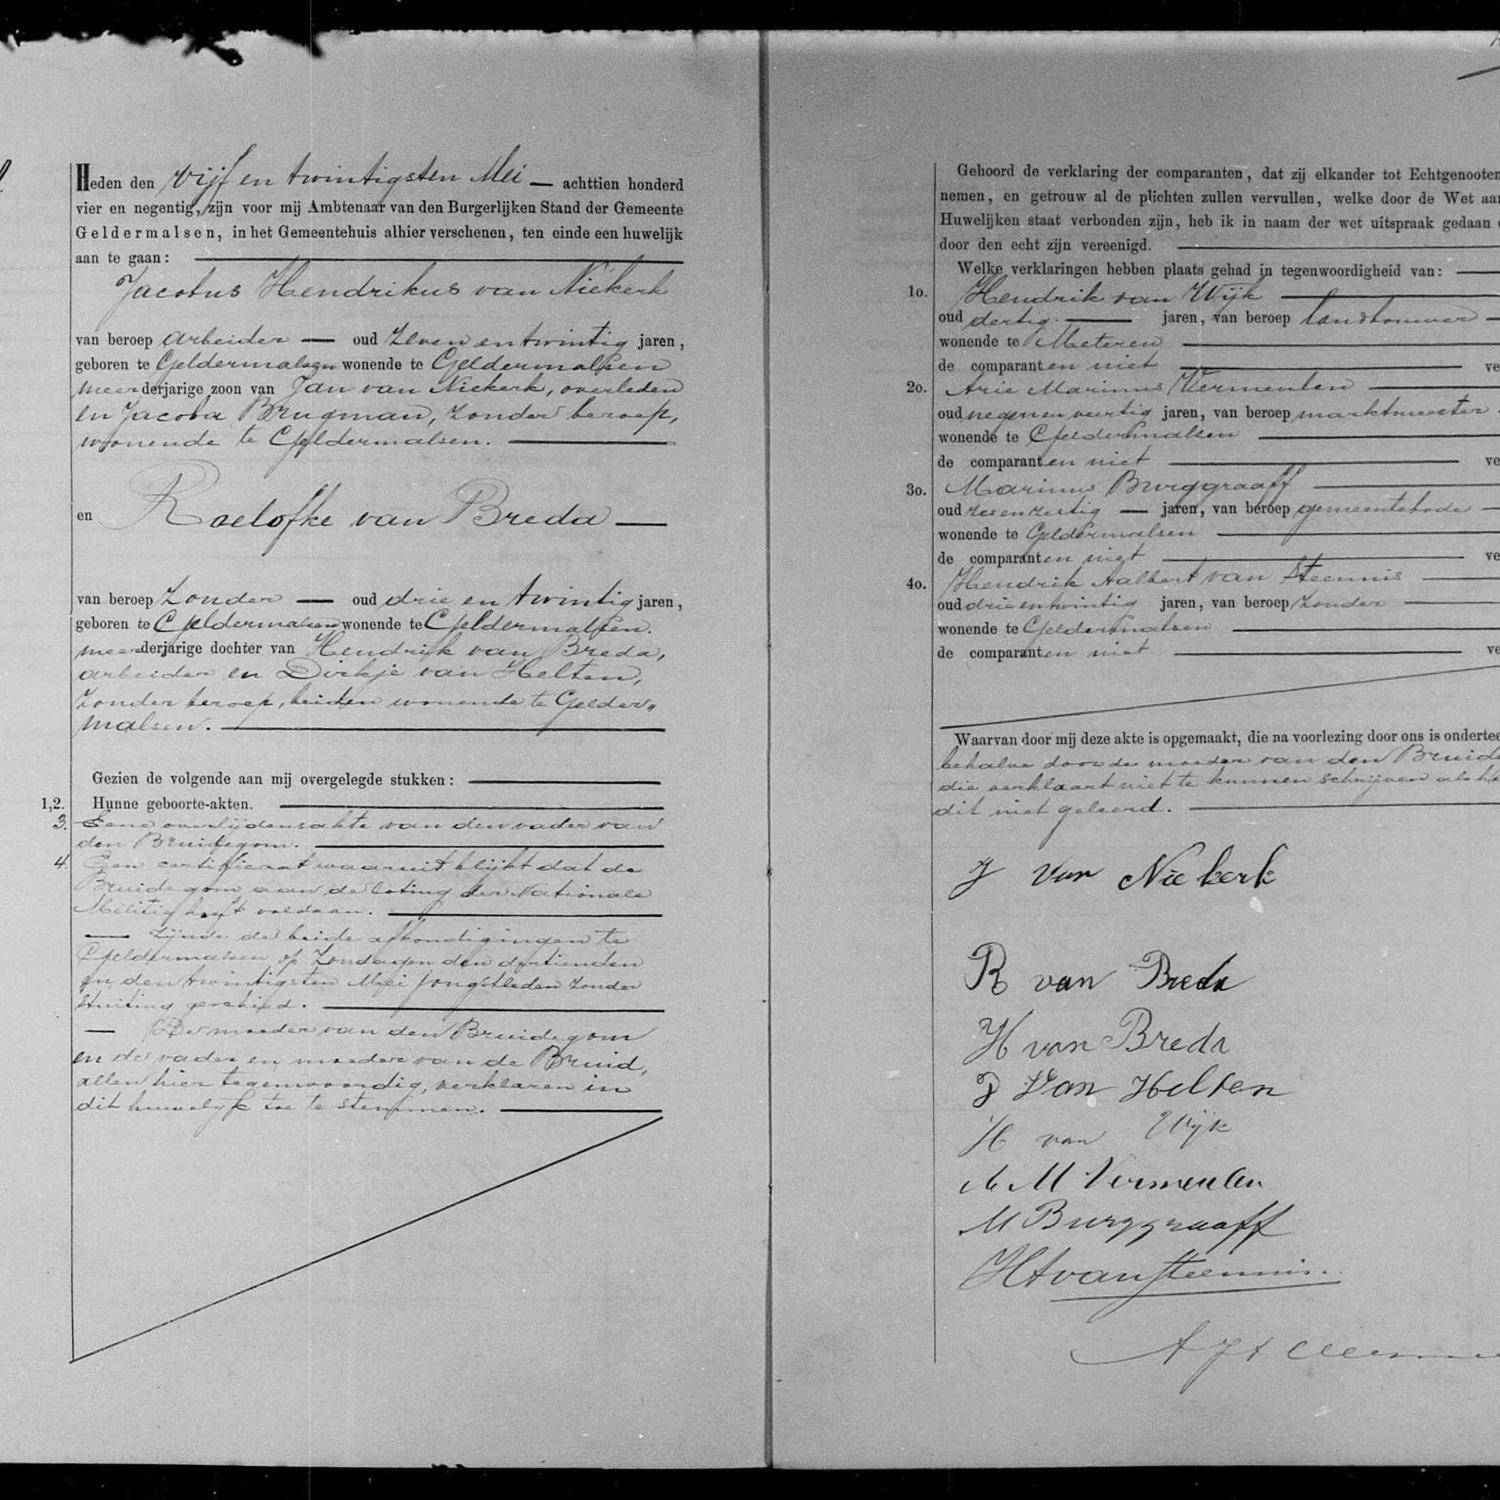 Heden den vijf en twintigsten Mei — achttien honderd
vier en negentig, zijn voor mij Ambtenaar van den Burgerlijken Stand der Gemeente
Geldermalsen, in het Gemeentehuis alhier verschenen, ten einde een huwelijk
aan te gaan:
Jacobus Hendrikus van Niekerk
van beroep arbeider — oud zeven en twintig jaren,
geboren te Geldermalsen wonende te Geldermalsen
meerderjarige zoon van Jan van Niekerk, overleden
en Jacoba Brugman, zonder beroep,
wonende te Geldermalsen.
en Roelofke van Breda —
van beroep zonder — oud drie en twintig jaren,
geboren te Geldermalsen wonende te Geldermalsen.
meerderjarige dochter van Hendrik van Breda,
arbeider en Dirkje van Helten,
zonder beroep, beiden wonende te Gelder„
malsen.
Gezien de volgende aan mij overgelegde stukken:
1,2. Hunne geboorte-akten.
3. Eene overlijdensakte van den vader van
den Bruidegom.
4. Een certificaat waaruit blijkt dat de
Bruidegom aan de loting der Nationale
Militie heeft voldaan.
— zijnde de beide afkondigingen te
Geldermalsen op Zondagen den dertienden
en den twintigsten Mei jongstleden zonder
stuiting geschied.
— De moeder van den Bruidegom
en de vader en moeder van de Bruid,
allen hier tegenwoordig, verklaren in
dit huwelijk toe te stemmen.
Gehoord de verklaring der comparanten, dat zij elkander tot Echtgenooten
nemen, en getrouw al de plichten zullen vervullen, welke door de Wet aan
Huwelijken staat verbonden zijn, heb ik in naam der wet uitspraak gedaan
door den echt zijn vereenigd.
Welke verklaringen hebben plaats gehad in tegenwoordigheid van: —
1o. Hendrik van Wijk
oud dertig — jaren, van beroep landbouwer —
wonende te Meteren
de comparanten niet ve
2o. Arie Marinus Vermeulen
oud negen en veertig jaren, van beroep marktmeester
wonende te Geldermalsen
de comparanten niet ve
3o. Marinus Burggraaff
oud zes en zestig — jaren, van beroep gemeentebode —
wonende te Geldermalsen
de comparanten niet ve
4o. Hendrik Aalbert van Steennis
oud drie en twintig jaren, van beroep zonder
wonende te Geldermalsen
de comparanten niet ve
Waarvan door mij deze akte is opgemaakt, die na voorlezing door ons is ondertee
behalve door de moeder van den Bruide
die verklaart niet te kunnen schrijven als he
dit niet geleerd.
J van Niekerk
R van Breda
H van Breda
D van Helten
H van Wijk
A M Vermeulen
M Burggraaff
HAvanSteennis.